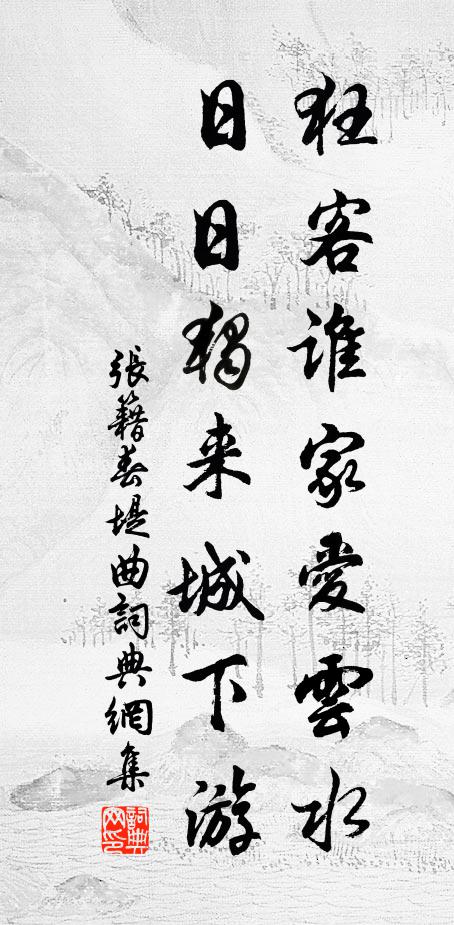 狂客谁家愛雲水
日日獨来城下游
張籍春堤曲詞典網集
詞典网印